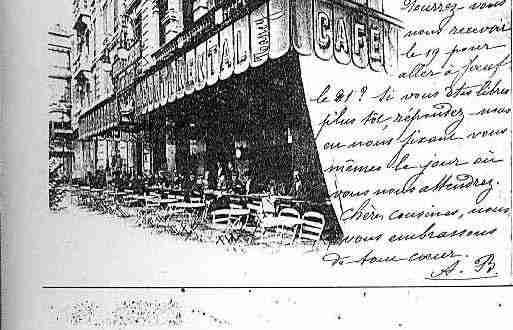 CONTINENTAL
CAFÉ
Pourrez vous
nous recevoir
le 19 pour
aller à Joeuf
le 21? Si vous êtes libres
plus tôt répondez-nous
en nous fixant vous
mêmes le jour où
vous nous attendrez.
Chères cousines, nous
vous embrassons
de tout coeur.
A. B